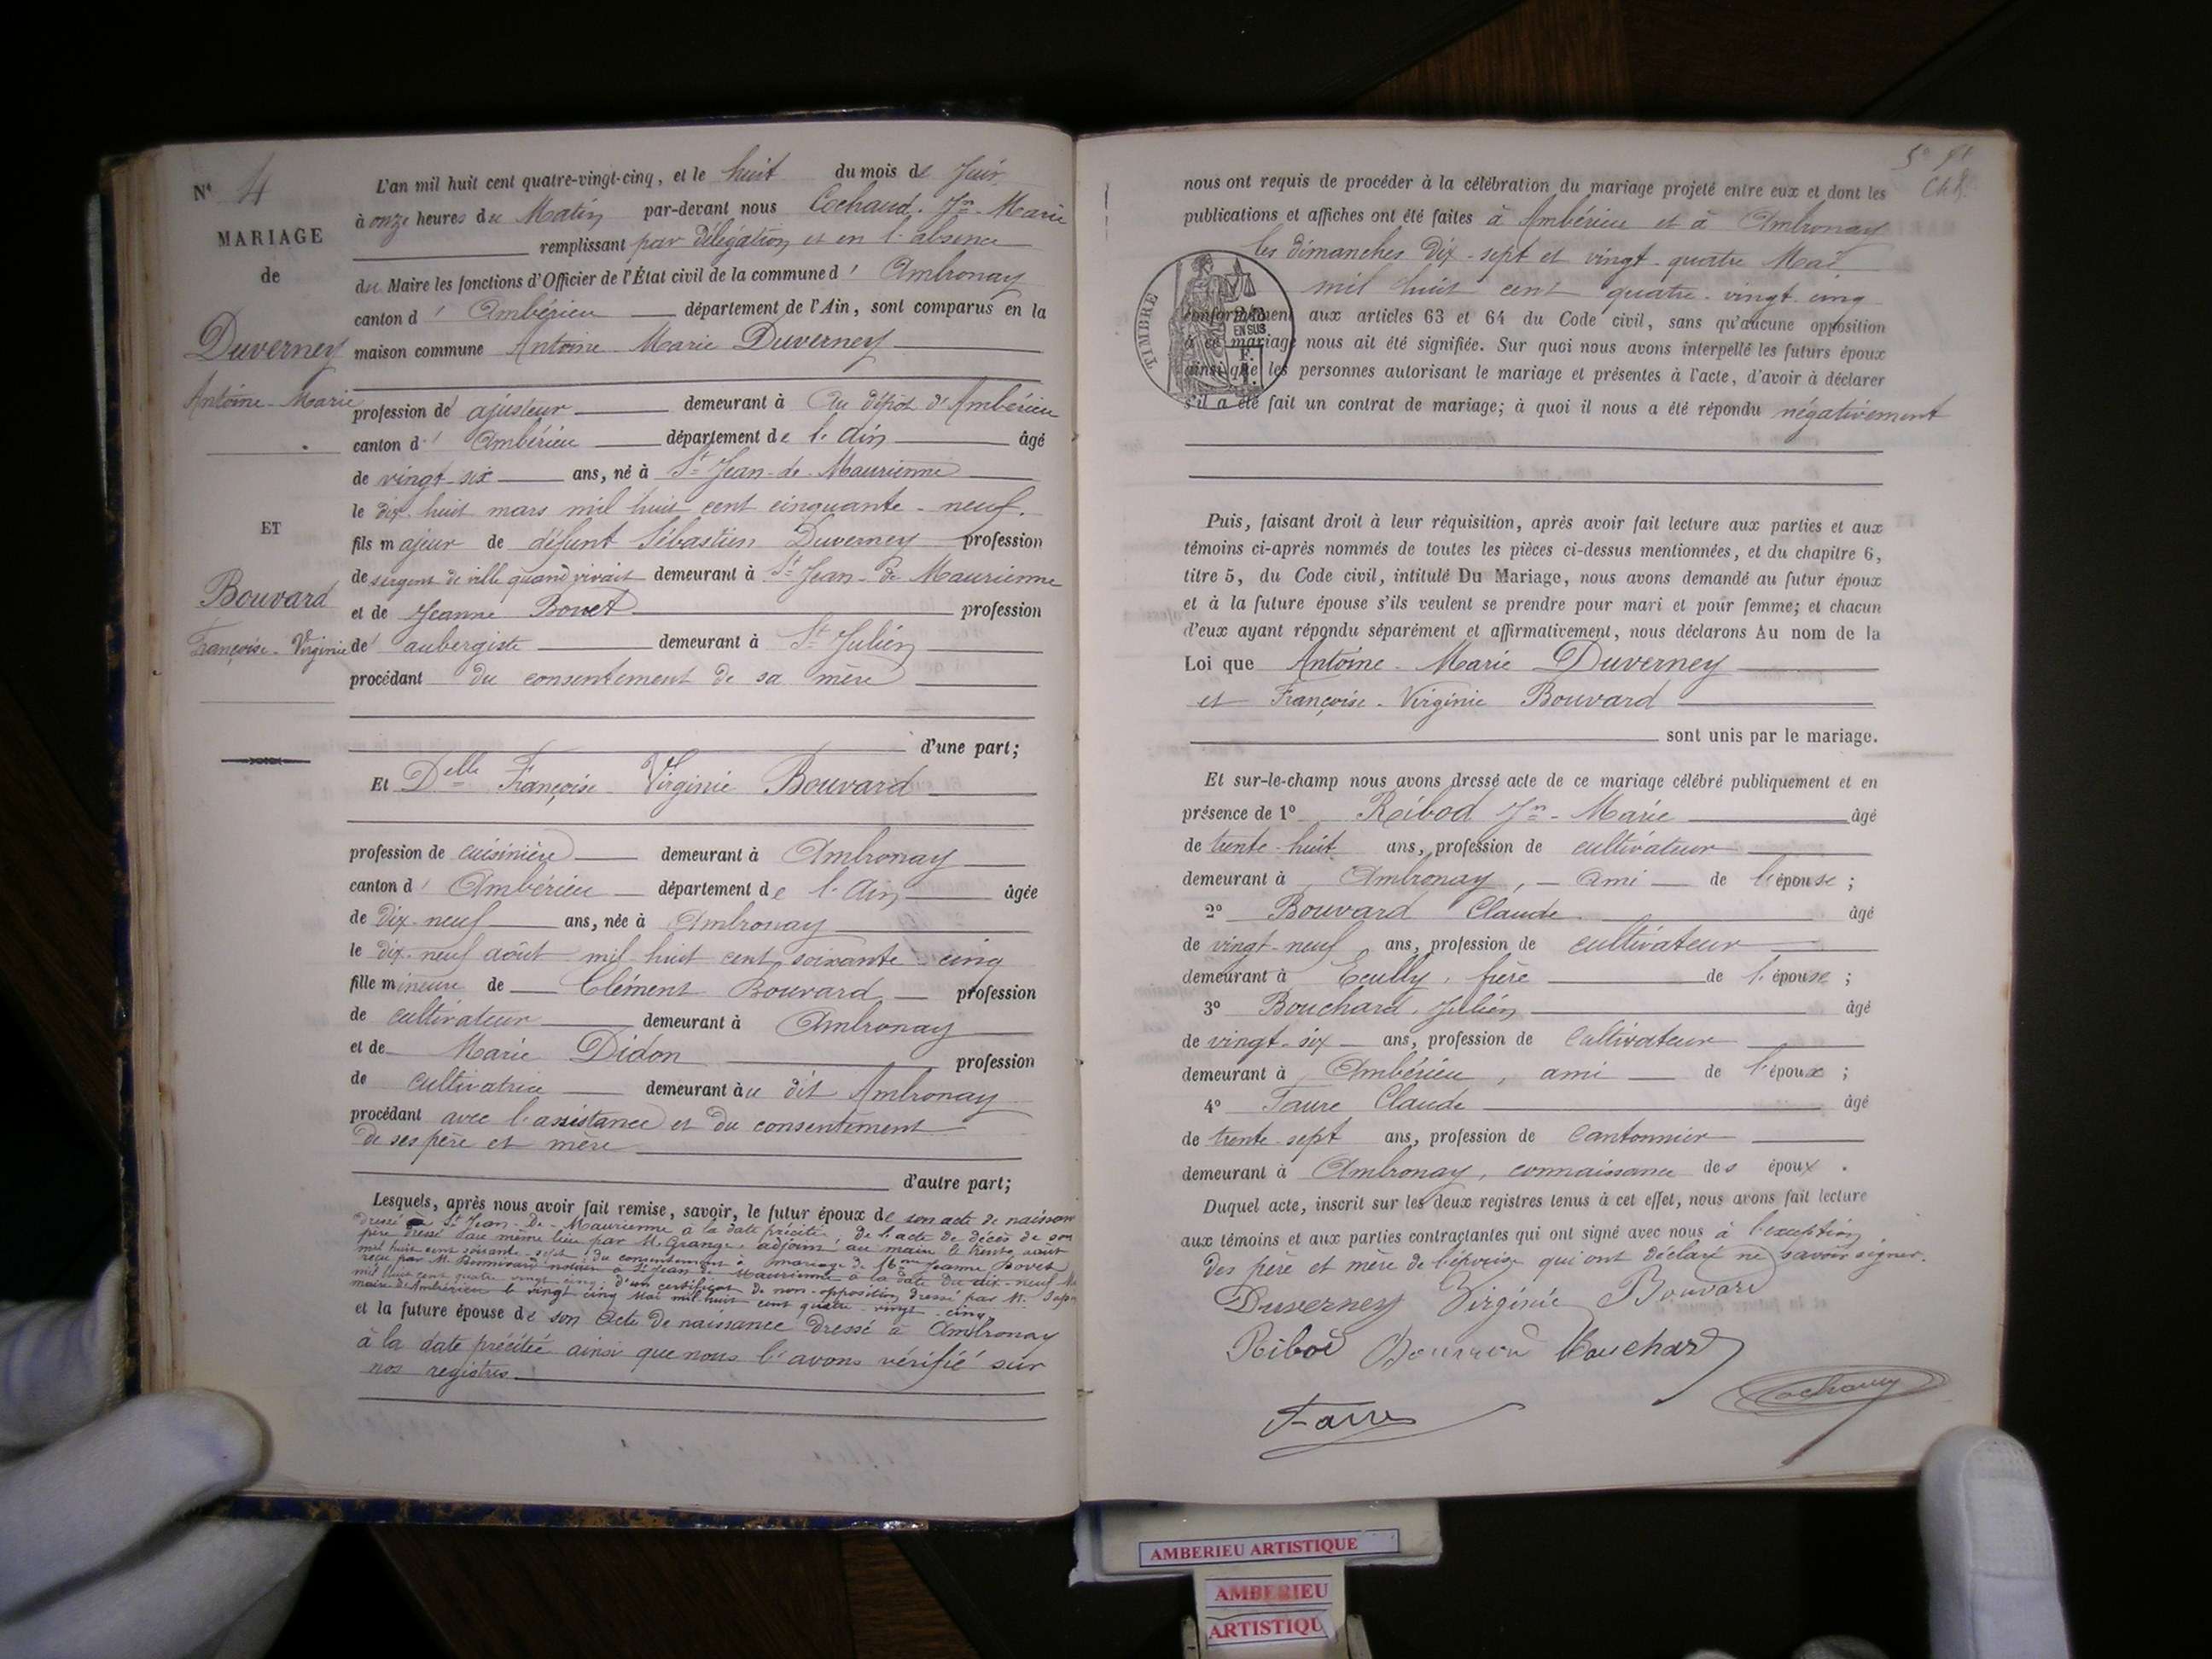 N° 4
MARIAGE
de
Duverney
Antoine-Marie
ET
Bouvard
Françoise-Virginie
L'an mil huit cent quatre-vingt-cinq, et le huit du mois de Juin
à onze heures du Matin par-devant nous Cochaud, Jn-Marie
remplissant par délégation et en l'absence
du Maire les fonctions d'Officier de l'État civil de la commune d'Ambronay
canton d'Ambérieu département de l'Ain, sont comparus en la
maison commune Antoine Marie Duverney
profession de ajusteur demeurant à Au dépôt d'Ambérieu
canton d'Ambérieu département de l'Ain âgé
de vingt-six ans, né à St Jean-de-Maurienne
le dix-huit mars mil huit cent cinquante-neuf.
fils majeur de défunt Sébastien Duverney profession
de sergent de ville quand vivait demeurant à St Jean-de-Maurienne
et de Jeanne Bovet profession
de aubergiste demeurant à St Julien
procédant du consentement de sa mère
d'une part;
Et Delle Françoise Virginie Bouvard
profession de cuisinière demeurant à Ambronay
canton d'Ambérieu département de l'Ain âgée
de dix-neuf ans, née à Ambronay
le dix-neuf août mil huit cent soixante-cinq
fille mineure de Clément Bouvard profession
de cultivateur demeurant à Ambronay
et de Marie Didon profession
de cultivatrice demeurant au dit Ambronay
procédant avec l'assistance et du consentement
de ses père et mère
d'autre part;
Lesquels, après nous avoir fait remise, savoir, le futur époux de son acte de naissance
dressé à St Jean-De-Maurienne à la date précitée, de l'acte de décès de son
père dressé au même lieu par M. Grange, adjoint au maire le trente août
mil huit cent soixante-sept, du consentement à mariage de Mme Jeanne Bovet
reçu par M. notaire à St Jean de Maurienne à la date du dix-neuf
mil huit cent quatre vingt cinq; d'un certificat de non-opposition dressé par M.
maire d'Ambérieu le vingt cinq Mai mil huit cent quatre-vingt-cinq,
et la future épouse de son acte de naissance dressé à Ambronay
à la date précitée ainsi que nous l'avons vérifié sur
nos registres.
nous ont requis de procéder à la célébration du mariage projeté entre eux et dont les
publications et affiches ont été faites à Ambérieu et à Ambronay
les dimanches dix-sept et vingt-quatre Mai
mil huit cent quatre-vingt cinq
conformément aux articles 63 et 64 du Code civil, sans qu'aucune opposition
à ce mariage nous ait été signifiée. Sur quoi nous avons interpellé les futurs époux
ainsi que les personnes autorisant le mariage et présentes à l'acte, d'avoir à déclarer
s'il a été fait un contrat de mariage; à quoi il nous a été répondu négativement
TIMBRE
EN SUS
Puis, faisant droit à leur réquisition, après avoir fait lecture aux parties et aux
témoins ci-après nommés de toutes les pièces ci-dessus mentionnées, et du chapitre 6,
titre 5, du Code civil, intitulé Du Mariage, nous avons demandé au futur époux
et à la future épouse s'ils veulent se prendre pour mari et pour femme; et chacun
d'eux ayant répondu séparément et affirmativement, nous déclarons Au nom de la
Loi que Antoine-Marie Duverney
et Françoise-Virginie Bouvard
sont unis par le mariage.
Et sur-le-champ nous avons dressé acte de ce mariage célébré publiquement et en
présence de 1° Ribod Jn-Marie âgé
de trente-huit ans, profession de cultivateur
demeurant à Ambronay, ami de l'épouse;
2° Bouvard Claude âgé
de vingt-neuf ans, profession de cultivateur
demeurant à Ecully, frère de l'épouse;
3° Bouchard, Julien âgé
de vingt-six ans, profession de Cultivateur
demeurant à Ambérieu, ami de l'époux;
4° Faure Claude âgé
de trente-sept ans, profession de Cantonnier
demeurant à Ambronay, connaissance des époux.
Duquel acte, inscrit sur les deux registres tenus à cet effet, nous avons fait lecture
aux témoins et aux parties contractantes qui ont signé avec nous à l'exception
des père et mère de l'épouse qui ont déclaré ne savoir signer.
Duverney Virginie Bouvard
Ribod Bouvard Bouchard
Cochaud
Faure
AMBERIEU ARTISTIQUE
AMBERIEU
ARTISTIQU